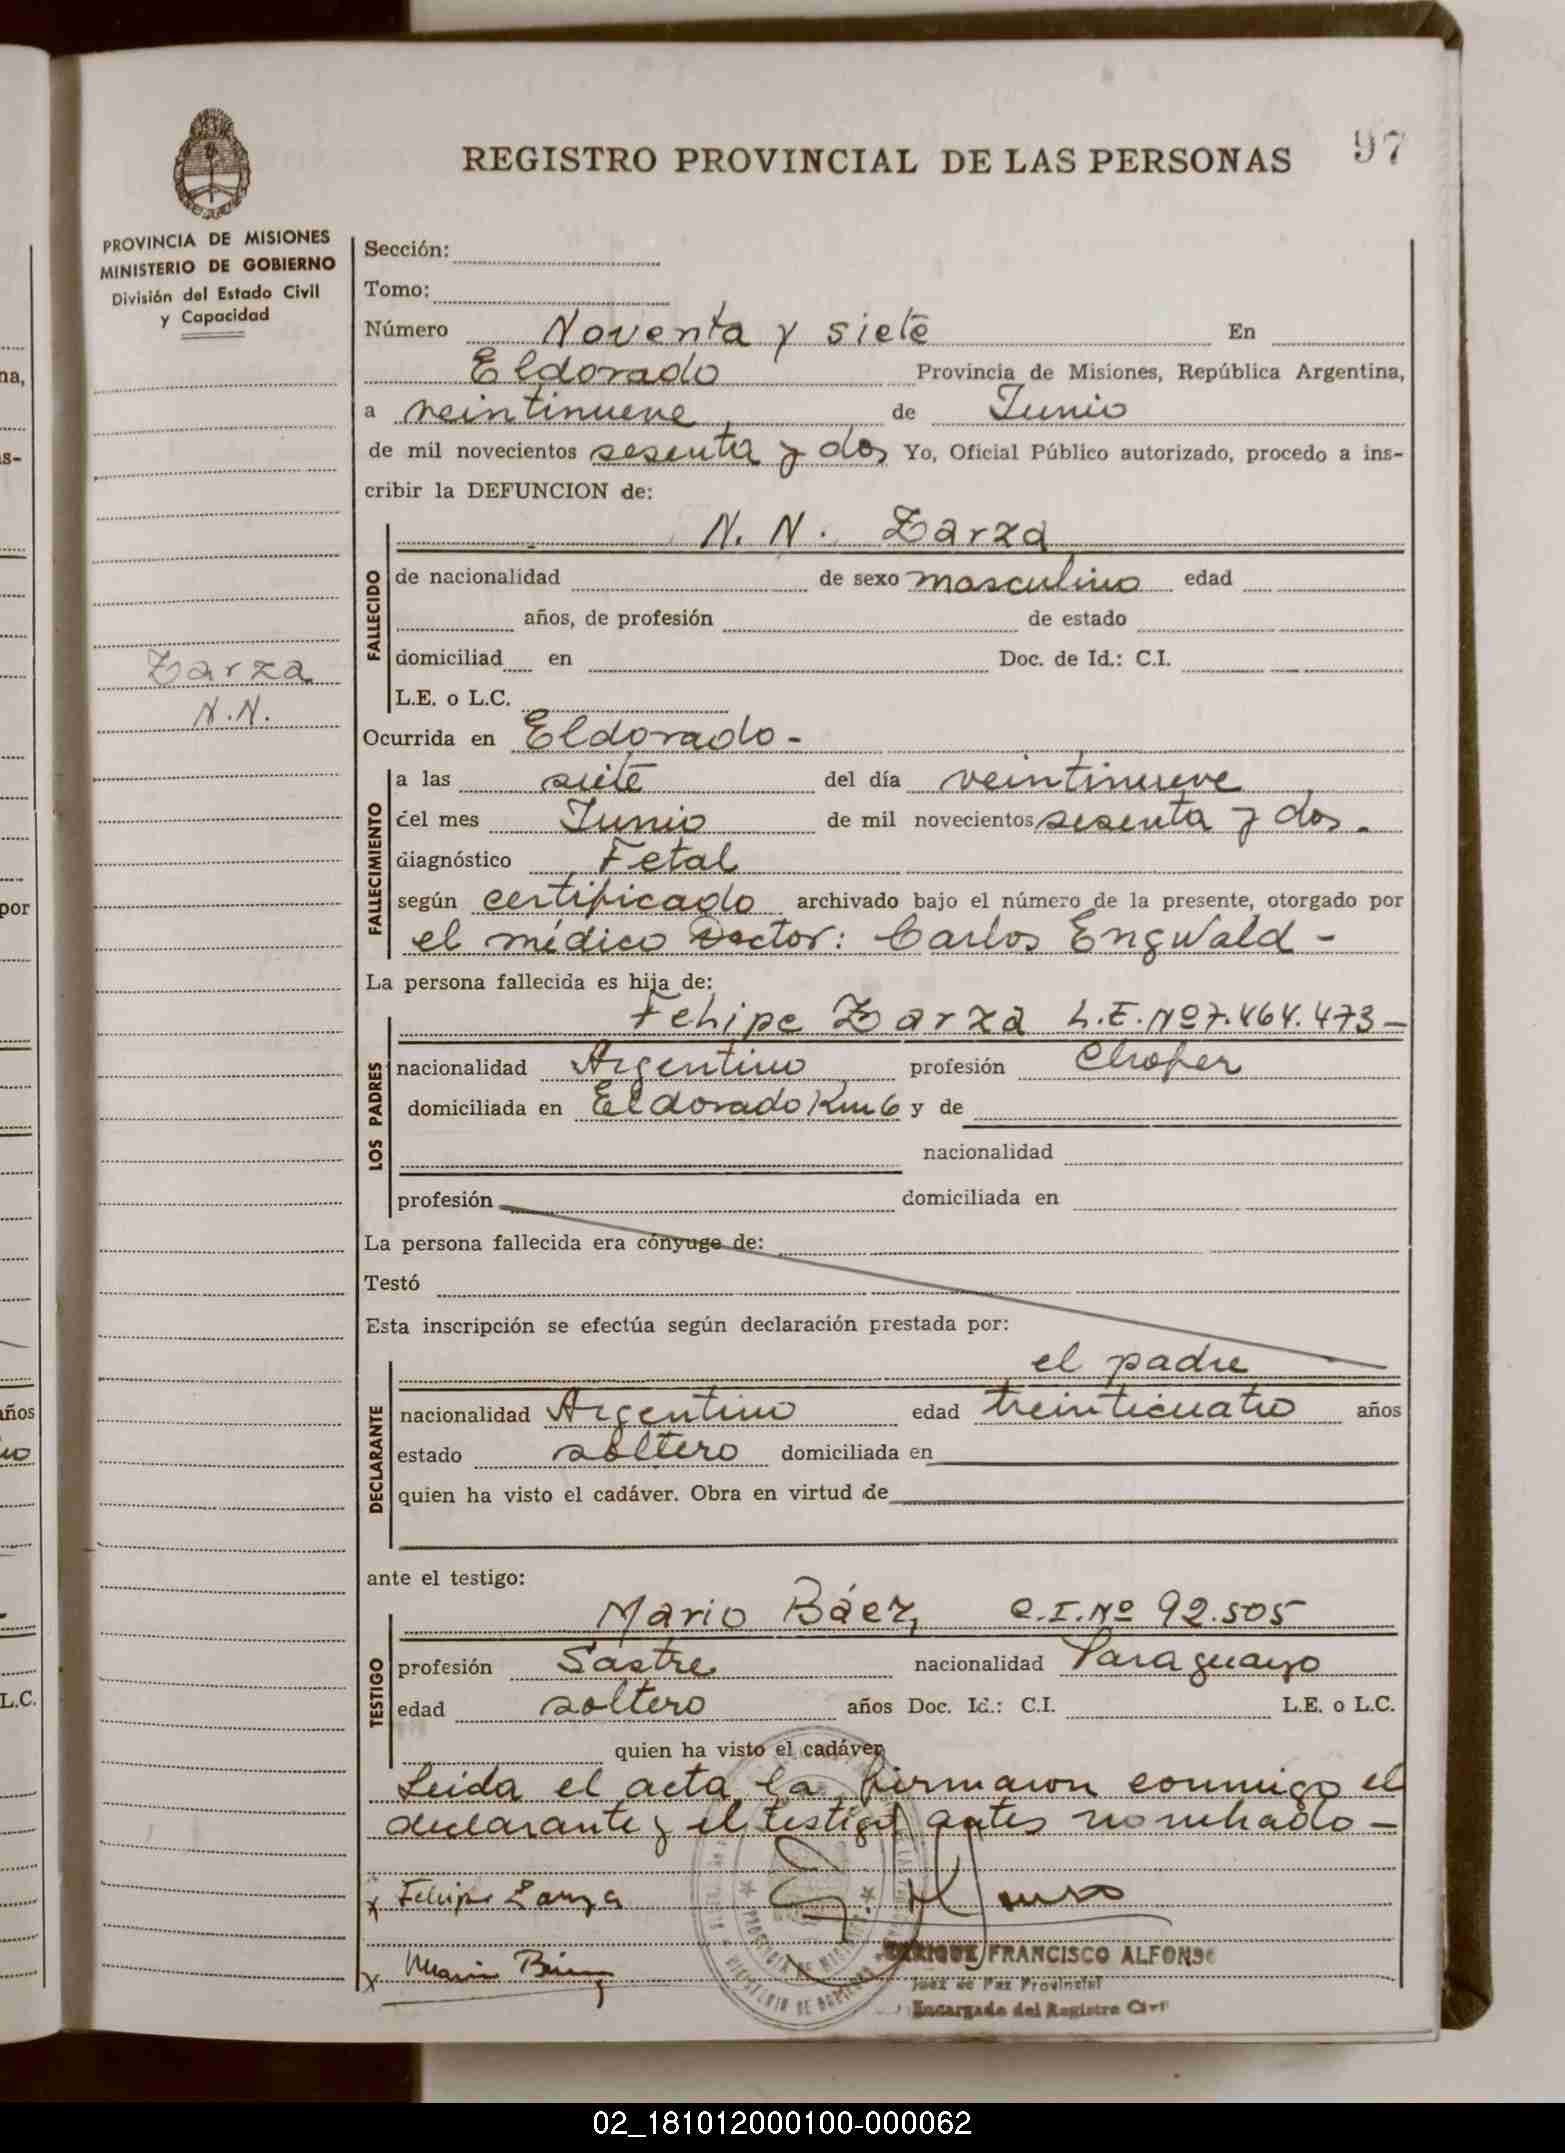 97
REGISTRO PROVINCIAL DE LAS PERSONAS
PROVINCIA DE MISIONES
MINISTERIO DE GOBIERNO
División del Estado Civil
y Capacidad
Zarza
N.N.
Sección:
Tomo:
Número Noventa y siete En
Eldorado Provincia de Misiones, República Argentina,
a veintinueve de Junio
de mil novecientos sesenta y dos Yo, Oficial Público autorizado, procedo a ins-
cribir la DEFUNCION de:
N. N. Zarza
FALLECIDO
de nacionalidad de sexo masculino edad
años, de profesión de estado
domiciliad en Doc. de Id.: C.I.
L.E. o L.C.
Ocurrida en Eldorado -
FALLECIMIENTO
a las siete del día veintinueve
del mes Junio de mil novecientos sesenta y dos.
diagnóstico Fetal
según certificado archivado bajo el número de la presente, otorgado por
el médico Doctor: Carlos Engwald -
La persona fallecida es hija de:
LOS PADRES
Felipe Zarza L.E. Nº 7.464.473 -
nacionalidad Argentino profesión Chofer
domiciliada en Eldorado Km 6 y de
nacionalidad
profesión domiciliada en
La persona fallecida era cónyuge de:
Testó
Esta inscripción se efectúa según declaración prestada por:
DECLARANTE
el padre
nacionalidad Argentino edad treinticuatro años
estado soltero domiciliada en
quien ha visto el cadáver. Obra en virtud de
ante el testigo:
TESTIGO
Mario Báez, C.I. Nº 92.505
profesión Sastre nacionalidad Paraguayo
edad soltero años Doc. Id.: C.I. L.E. o L.C.
quien ha visto el cadáver
Leida el acta la firmaron conmigo el
declarante y el testigo antes nombrado -
x Felipe Zarza
x Mario Báez
ENRIQUE FRANCISCO ALFONSO
Juez de Paz Provincial
Encargado del Registro Civil
na,
s-
por
años
L.C.
02_181012000100-000062